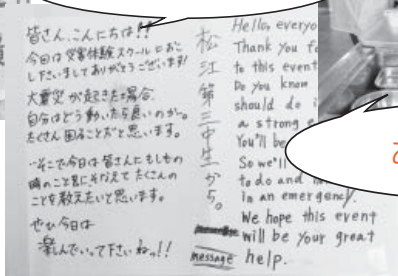 皆さん、こんにちは!!
今日は災害体験スクールにおこ
し下さいましてありがとうございます!
大震災が起きた場合、
自分はどう動いたら良いのか。
たくさん困ることだと思います。
そこで今日は皆さんにもしもの
時のこと異にそなえてたくさんの
ことを教えたいと思います。
ぜひ今日は
楽しんでいって下さいねっ!!
松江第三中生から。
Hello, everyo
Thank you fo
to this event
Do you know
should do i
a strong e
You'll be
So we'll
to do and
in an emergency.
We hope this event
will be your great
message help.